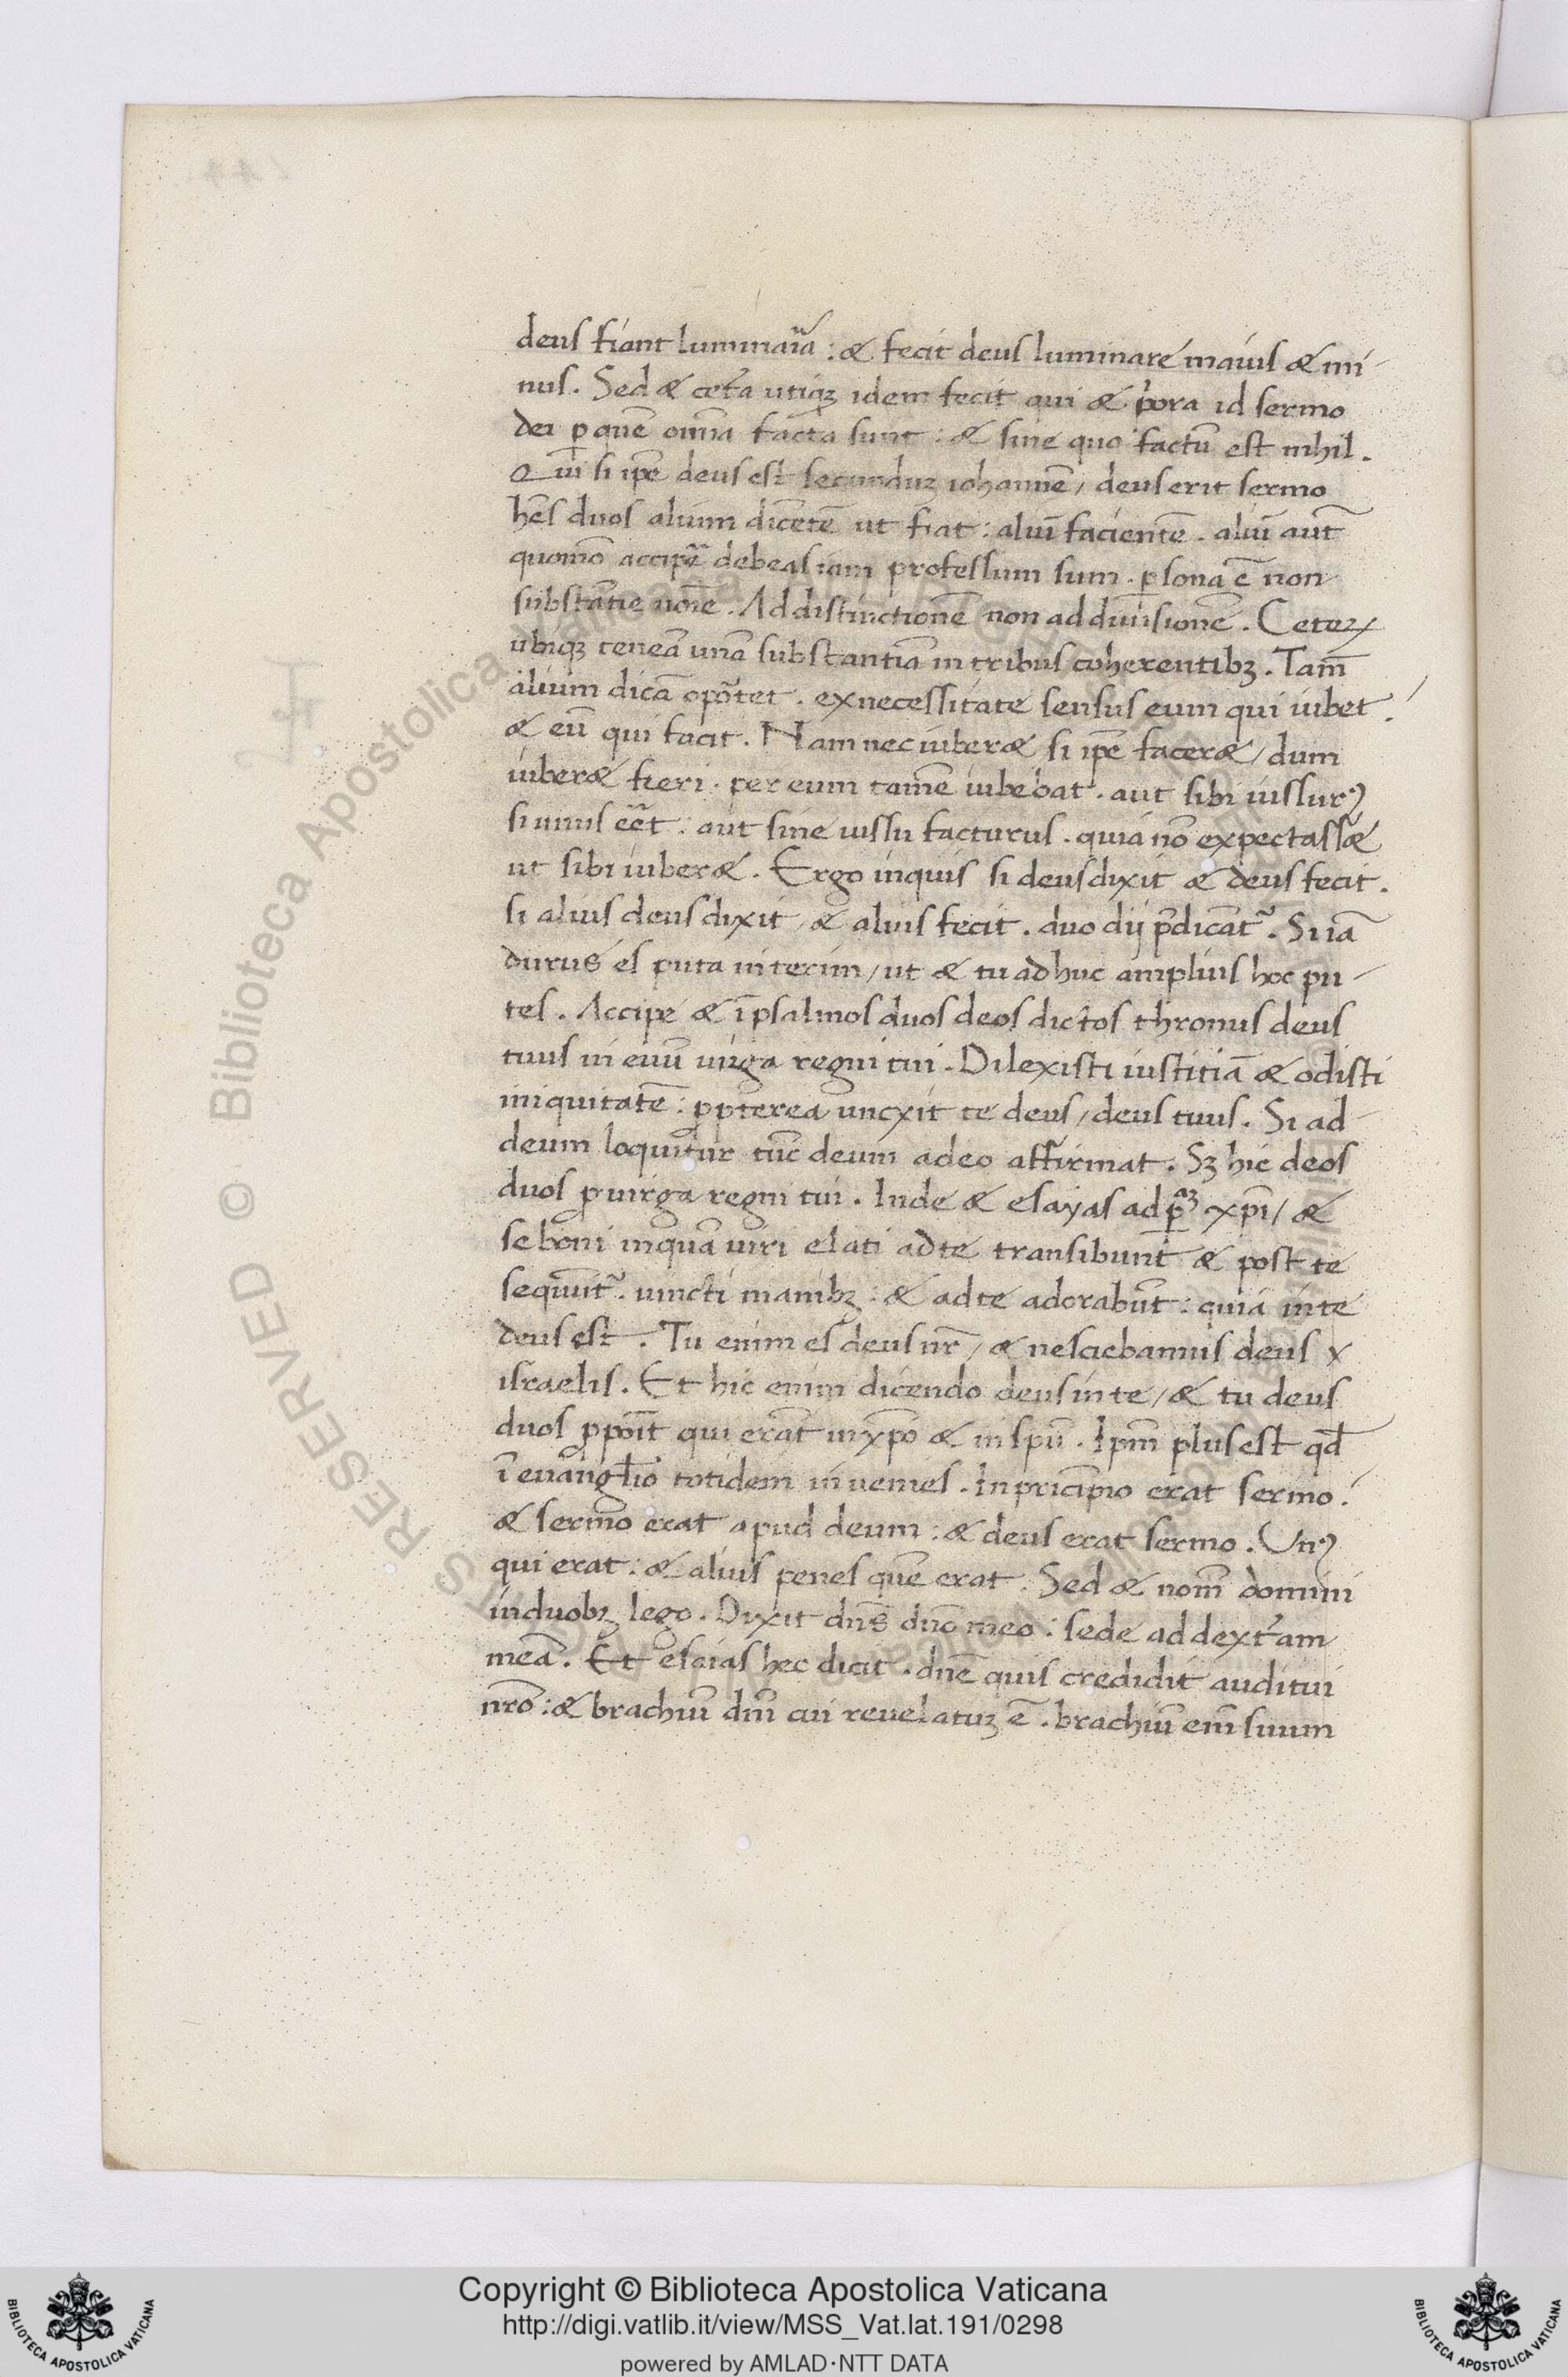 deus fiant luminaria : & fecit deus luminare maius & mi-
nus . Sed & cet̃a utiqꝫ idem fecit qui & p̃ora id sermo
dei ꝑ quē om̄ia facta sunt : & sine quo factū est nihil .
Qui si ip̄e deus est secunduꝫ iohannē / deus erit sermo
hēs duos alium dicētē ut fiat : aliū facientē . aliū aut̃
quomō accipe᷑ debeas iam professum sum . ꝑsonae nō non
substātie noīe . Ad distinctionē non ad diuisionē . Ceteꝝ
ubiqꝫ teneā unā substantiā in tribus coherentibꝫ . Tam̄
alium dicā opōtet . ex necessitate sensus eum qui iubet .
& eū qui facit . Nam nec iuber& si ip̄e facer& / dum
iuber& fieri . per eum tamē iubebat . aut sibi iussurꝰ
si unus eēt : aut sine iussu facturus . quia nō expectass&
ut sibi iuber& . Ergo inquis si deus dixit & deus fecit .
si alius deus dixit & alius fecit . duo dij p̄dicāt᷑ . Si iā
durus es puta interim / ut & tu adhuc amplius hoc pu-
tes . Accipe & ī psalmos duos deos dictos thronus deus
tuus in euū uirga regni tui . Dilexisti iustitiā & odisti
iniquitatē : ꝓpterea uncxit te deus / deus tuus . Si ad
deum loquitur tūc deum adeo affirmat . Sꝫ hic deos
duos ꝓ uirga regni tui . Inde & esayas ad ꝑᷓꝫ xp̄i / &
seboni inquā uiri elati ad te transibunt & post te
sequūt᷑ . uincti manibꝫ : & ad te adorabūt : quia in te
deus est . Tu enim es deus nr̄ / & nesciebamus deus x
israelis . Et hic enim dicendo deus in te / & tu deus
duos ꝓpoīt qui erāt in xp̄o & in sp̄u . Ipm̄ plus est qd̄
ī euāngl̄io totidem inuenies . In pricīpio erat sermo .
& sermo erat apud deum : & deus erat sermo . Unꝰ
qui erat : & alius penes quē erat . Sed & nom̄ domini
in duobꝫ lego . Dixit dn̄s dn̄o meo : sede ad dext̃am
meā . Et esaias hec dicit . dn̄e quis credidit auditui
nr̄o : & brachiū dn̄i cui reuelatuꝫ ē . brachiū em̄ suum
Copyright © Biblioteca Apostolica Vaticana
http://digi.vatlib.it/view/MSS_Vat.lat.191/0298
powered by AMLAD·NTT DATA